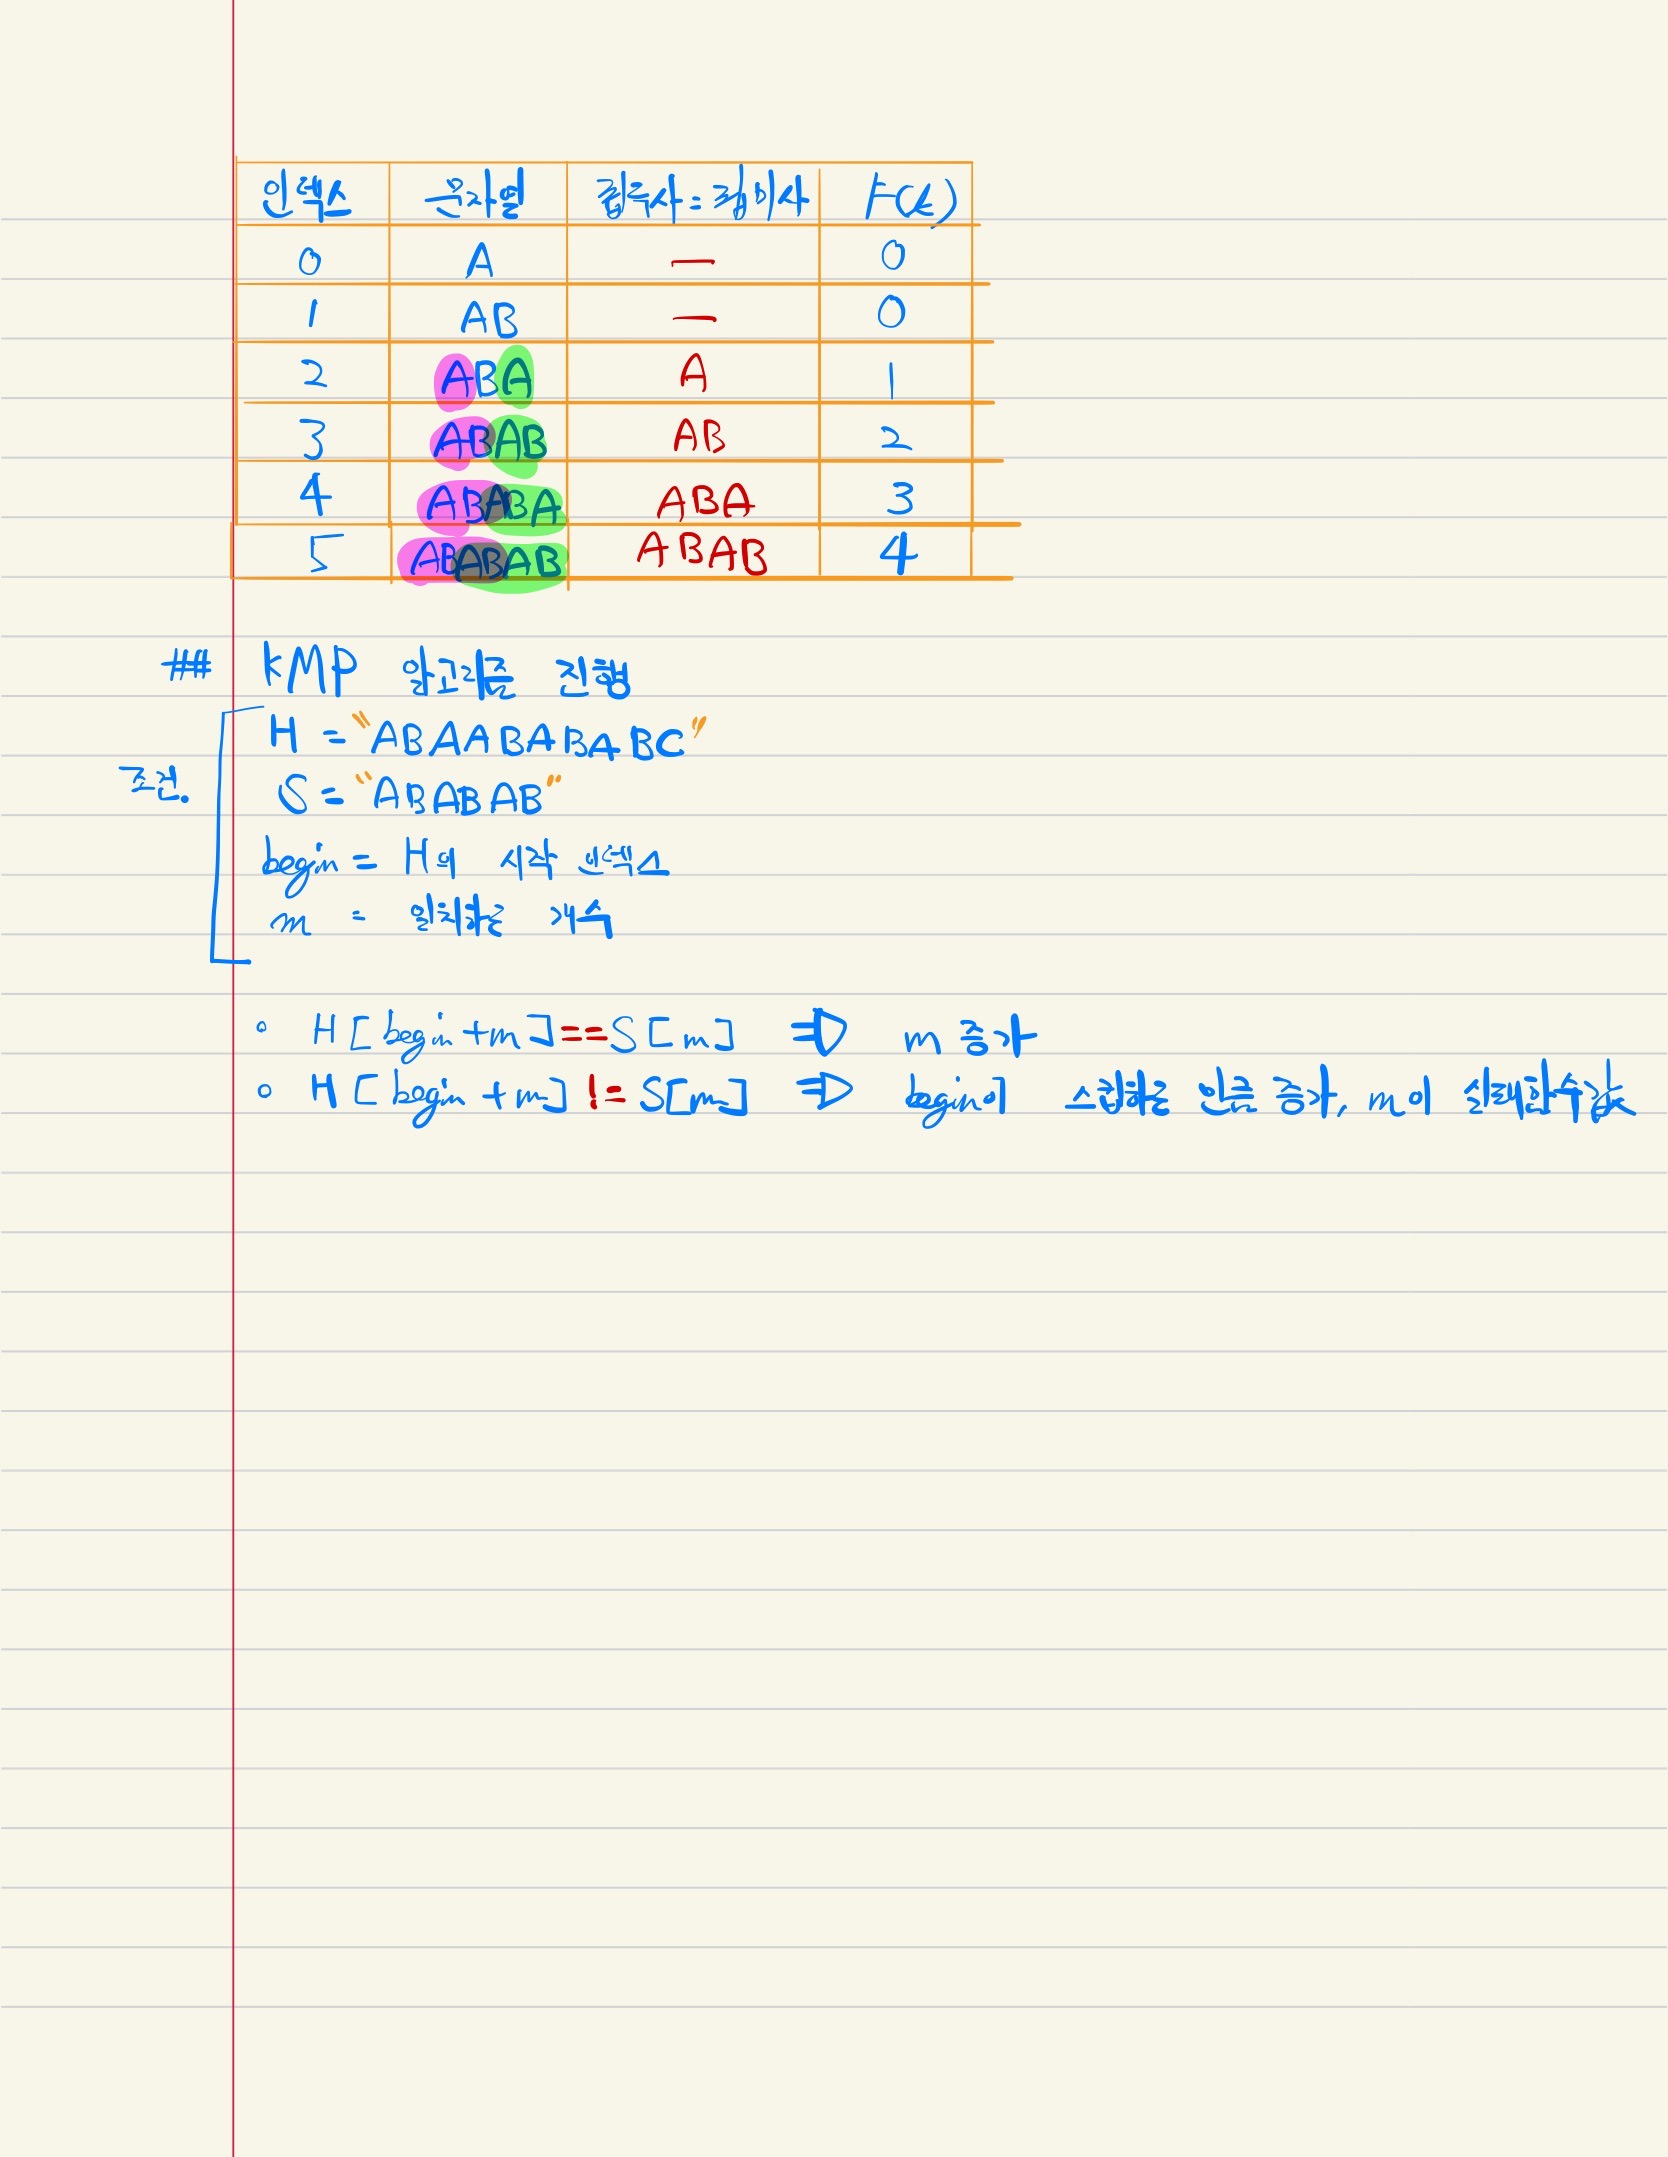 인덱스 문자열 접두사=접미사 F(k)
0 A — 0
1 AB — 0
2 ABA A 1
3 ABAB AB 2
4 ABABA ABA 3
5 ABABAB ABAB 4
## KMP 알고리즘 진행
조건.
H = "ABAABABABC"
S = "ABABAB"
begin = H의 시작 인덱스
m = 일치하는 개수
∘ H[begin+m]==S[m] ⇒ m 증가
∘ H[begin+m] != S[m] ⇒ begin이 스킵하는 만큼 증가, m이 실패함수값